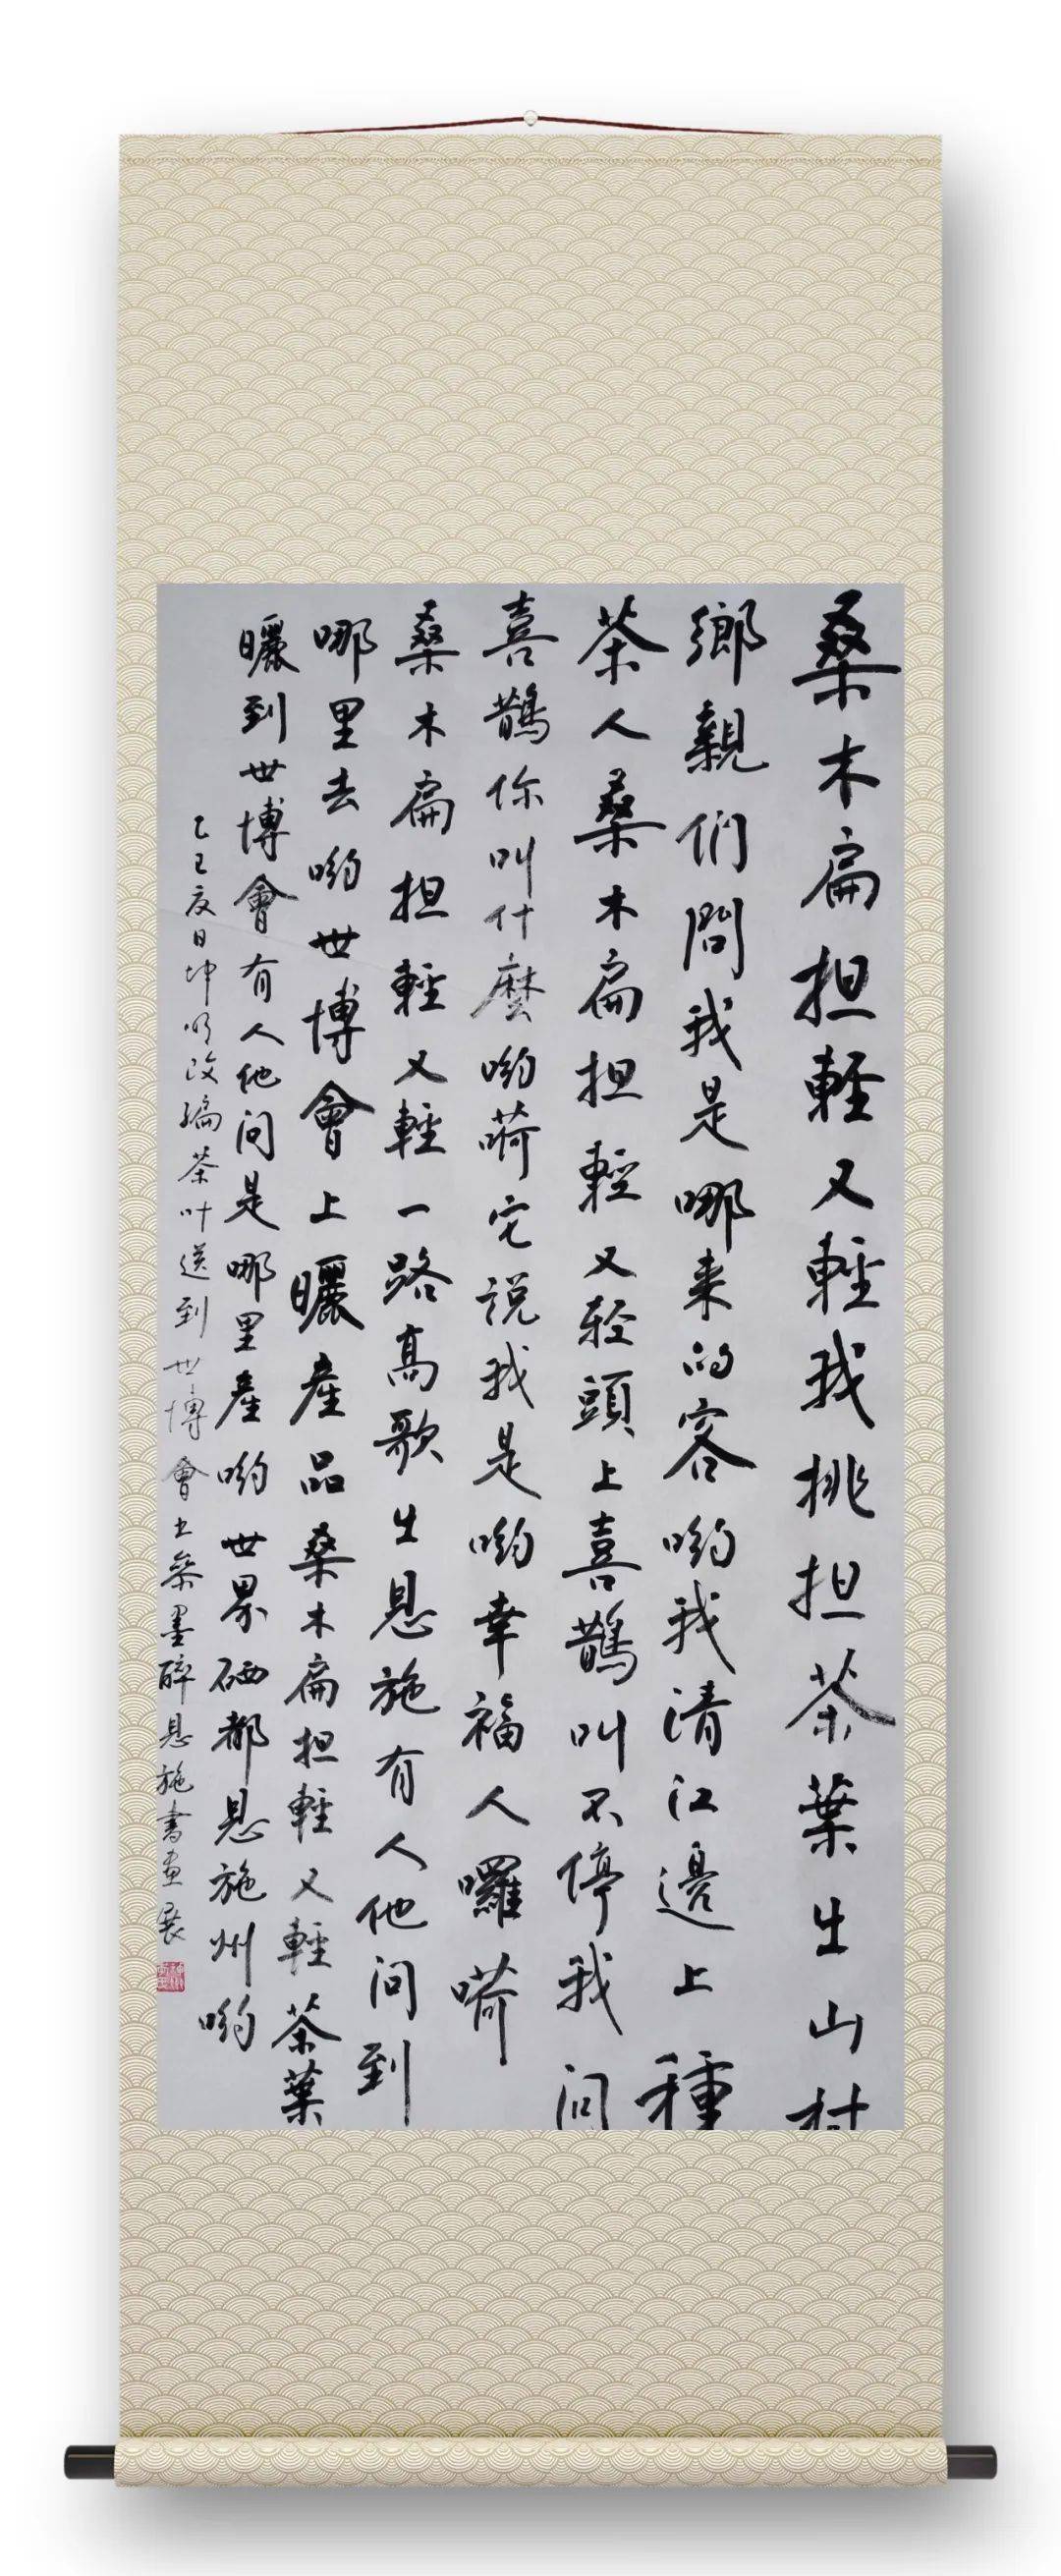 桑木扁担輕又輕我挑担茶葉出山村
鄉親們問我是哪来的客喲我清江邊上種
茶人桑木扁担輕又轻頭上喜鵲叫不停我问
喜鵲你叫什麼喲嗬它说我是喲幸福人囉嗬
桑木扁担輕又輕一路高歌出恩施有人他问到
哪里去喲世博會上曬産品桑木扁担輕又輕茶葉
曬到世博會有人他问是哪里産喲世界硒都恩施州喲
乙巳夜日坤明改编茶叶送到世博會上墨醉恩施書画展